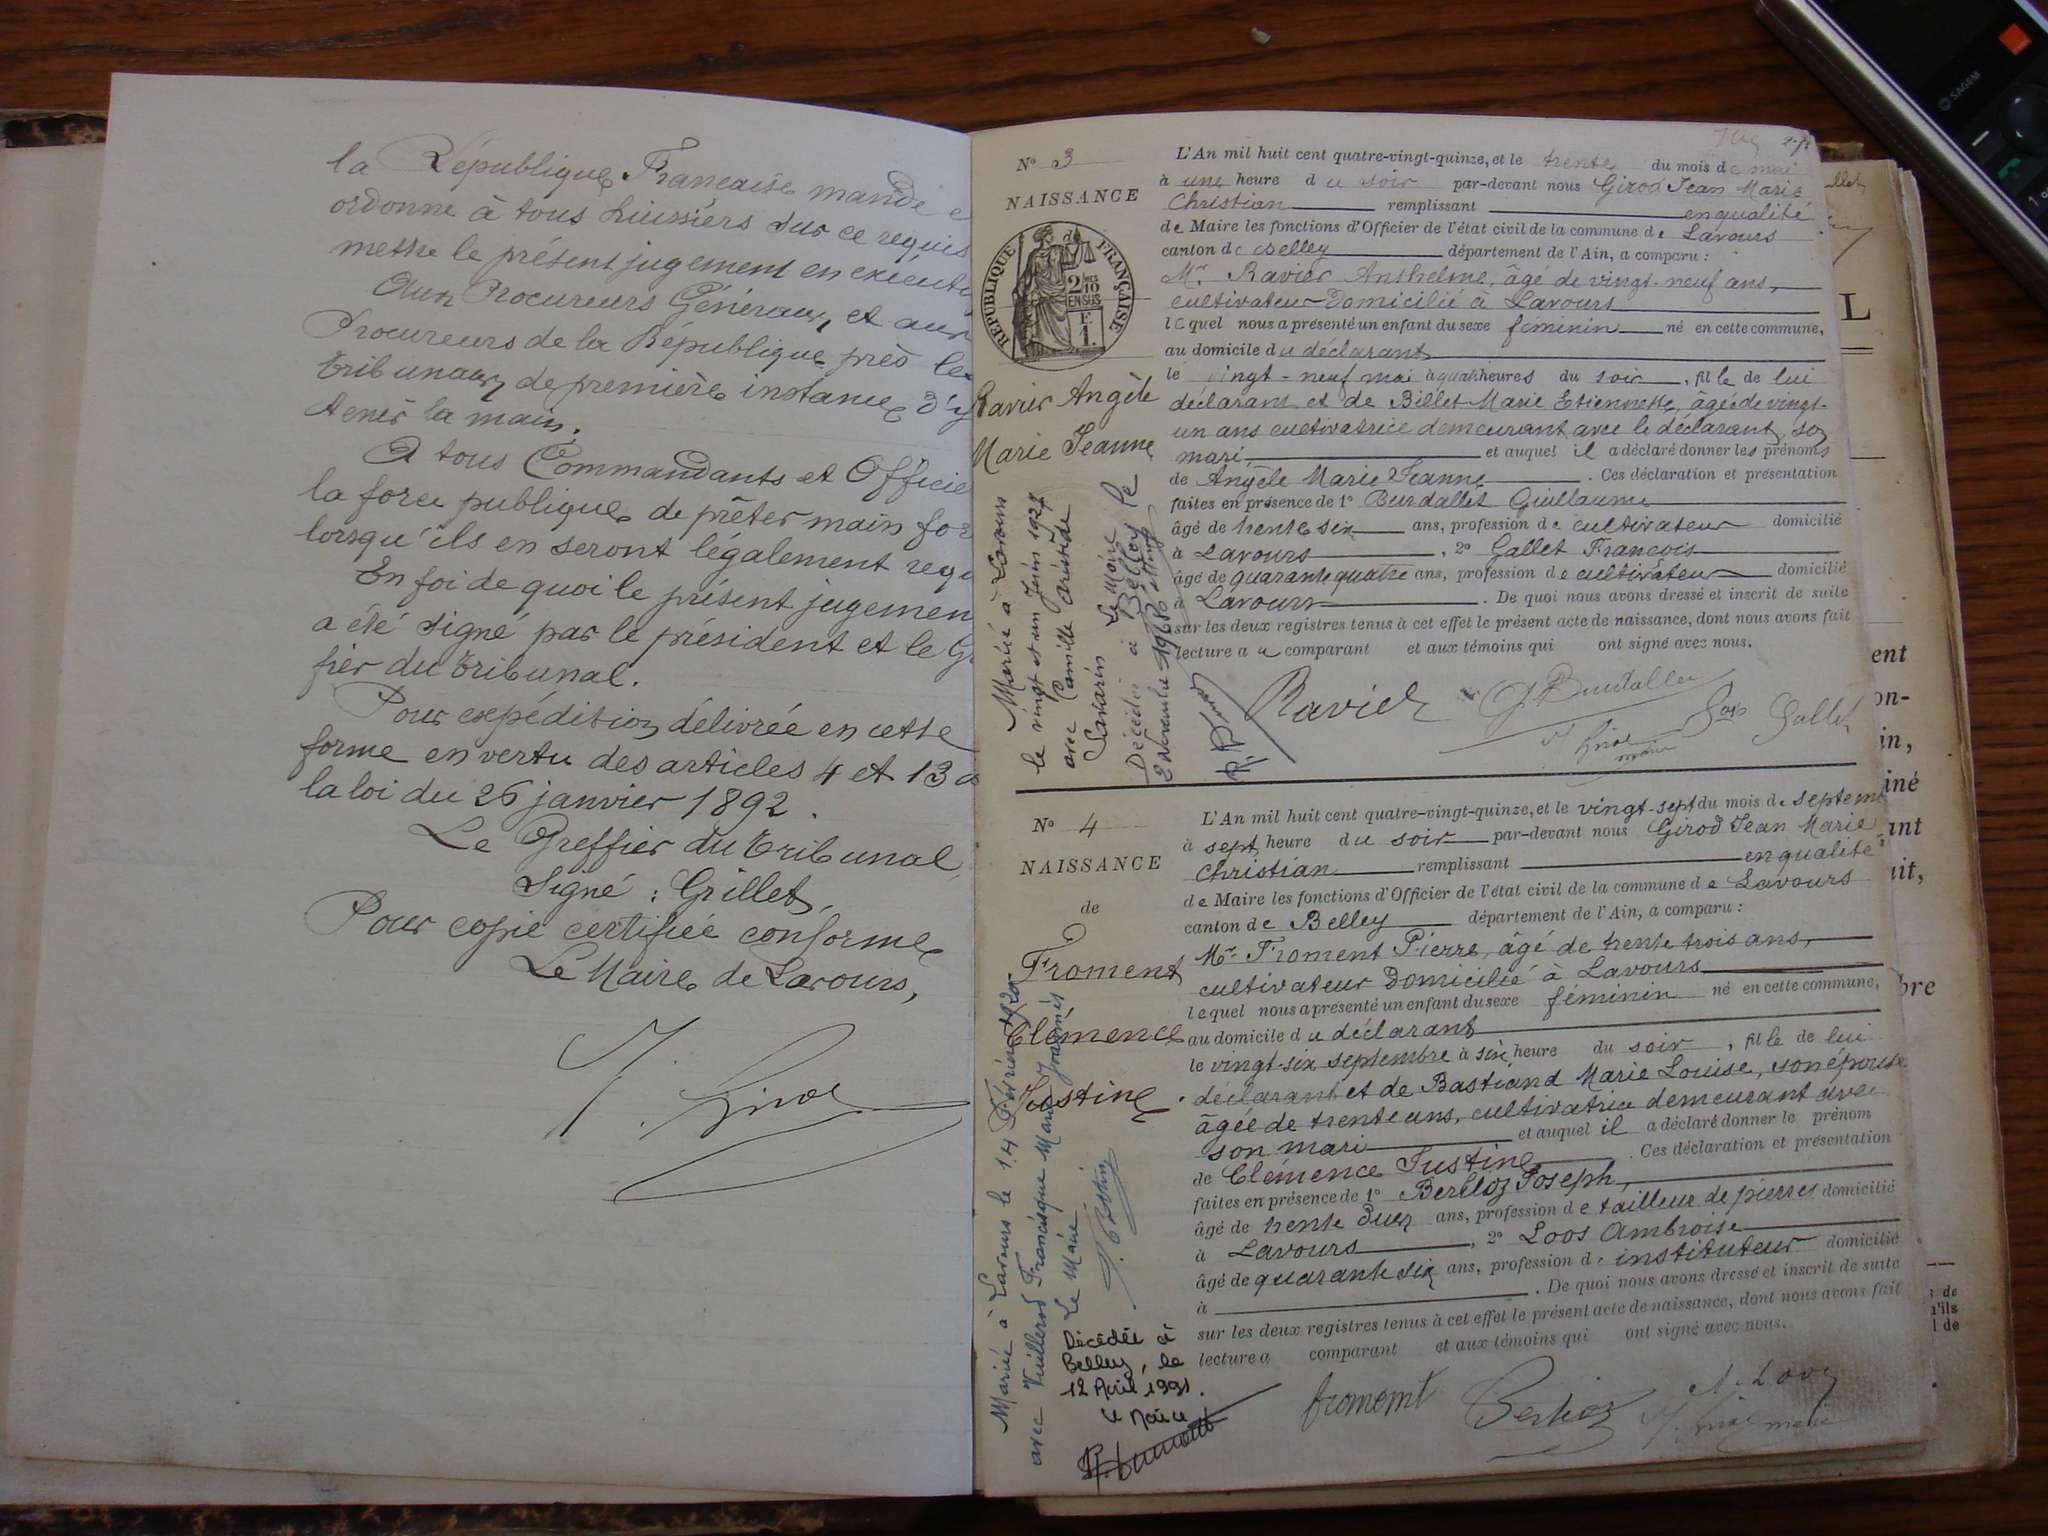 la République Française mande e
ordonne à tous huissiers sur ce requis
mettre le présent jugement en exécuti
Aux Procureurs Généraux, et aux
Procureurs de la République près le
tribunaux de première instance d'y
tenir la main.
A tous Commandants et Officie
la force publique de prêter main for
lorsqu'ils en seront légalement requ
En foi de quoi le présent jugemen
a été signé par le président et le G
fier du tribunal.
Pour expédition délivrée en cette
forme en vertu des articles 4 et 13 d
la loi du 26 janvier 1892.
Le Greffier du tribunal,
Signé : Grillet,
Pour copie certifiée conforme
Le Maire de Lavours,
J. Girod
N° 3
NAISSANCE
de
REPUBLIQUE FRANÇAISE
2/10
EN SUS
F.
1.
Ravier Angèle
Marie Jeanne
Marié à Lavours
le vingt et un Juin 1927
avec Camille Aristide
Savarin Le Maire
Décédée à Belley le
2 Novembre 1968
L'An mil huit cent quatre-vingt-quinze, et le trente du mois de mai
à une heure du soir par-devant nous Girod Jean Marie
Christian remplissant en qualité
de Maire les fonctions d'Officier de l'état civil de la commune de Lavours
canton de Belley département de l'Ain, a comparu :
Mr Ravier Anthelme, âgé de vingt-neuf ans,
cultivateur Domicilié à Lavours
lequel nous a présenté un enfant du sexe féminin né en cette commune,
au domicile du déclarant
le vingt-neuf mai à quatre heures du soir, fille de lui
déclarant et de Billet Marie Etiennette, âgée de vingt-
un ans cultivatrice demeurant avec le déclarant, son
mari, et auquel il a déclaré donner les prénoms
de Angèle Marie Jeanne. Ces déclaration et présentation
faites en présence de 1° Burdallet Guillaume
âgé de trente six ans, profession de cultivateur domicilié
à Lavours, 2° Gallet François
âgé de quarante quatre ans, profession de cultivateur domicilié
à Lavours. De quoi nous avons dressé et inscrit de suite
sur les deux registres tenus à cet effet le présent acte de naissance, dont nous avons fait
lecture au comparant et aux témoins qui ont signé avec nous.
Ravier G Burdallet
Gallet
J Girod
maire
N° 4
NAISSANCE
de
Froment
Clémence
Justine
Mariée à Lavours le 14 Février 1920
avec Vuillerod Francisque Marie Joannès
Le Maire
Décédée à
Belley, le
12 Avril 1991.
Le Maire
L'An mil huit cent quatre-vingt-quinze, et le vingt-sept du mois de septem
à sept heure du soir par-devant nous Girod Jean Marie
Christian remplissant en qualité
de Maire les fonctions d'Officier de l'état civil de la commune de Lavours
canton de Belley département de l'Ain, a comparu :
Mr Froment Pierre, âgé de trente trois ans,
cultivateur Domicilié à Lavours
lequel nous a présenté un enfant du sexe féminin né en cette commune,
au domicile du déclarant
le vingt-six septembre à six heure du soir, fille de lui
déclarant et de Bastiand Marie Louise, son épouse
âgée de trente ans, cultivatrice demeurant avec
son mari et auquel il a déclaré donner le prénom
de Clémence Justine. Ces déclaration et présentation
faites en présence de 1° Berlioz Joseph,
âgé de trente deux ans, profession de tailleur de pierres domicilié
à Lavours, 2° Loos Ambroise
âgé de quarante six ans, profession de instituteur domicilié
à . De quoi nous avons dressé et inscrit de suite
sur les deux registres tenus à cet effet le présent acte de naissance, dont nous avons fait
lecture a comparant et aux témoins qui ont signé avec nous.
froment Berlioz A. Loos
J Girod maire
SAGEM
L
ent
on-
in,
iné
ant
uit,
bre
s de
u'ils
l de